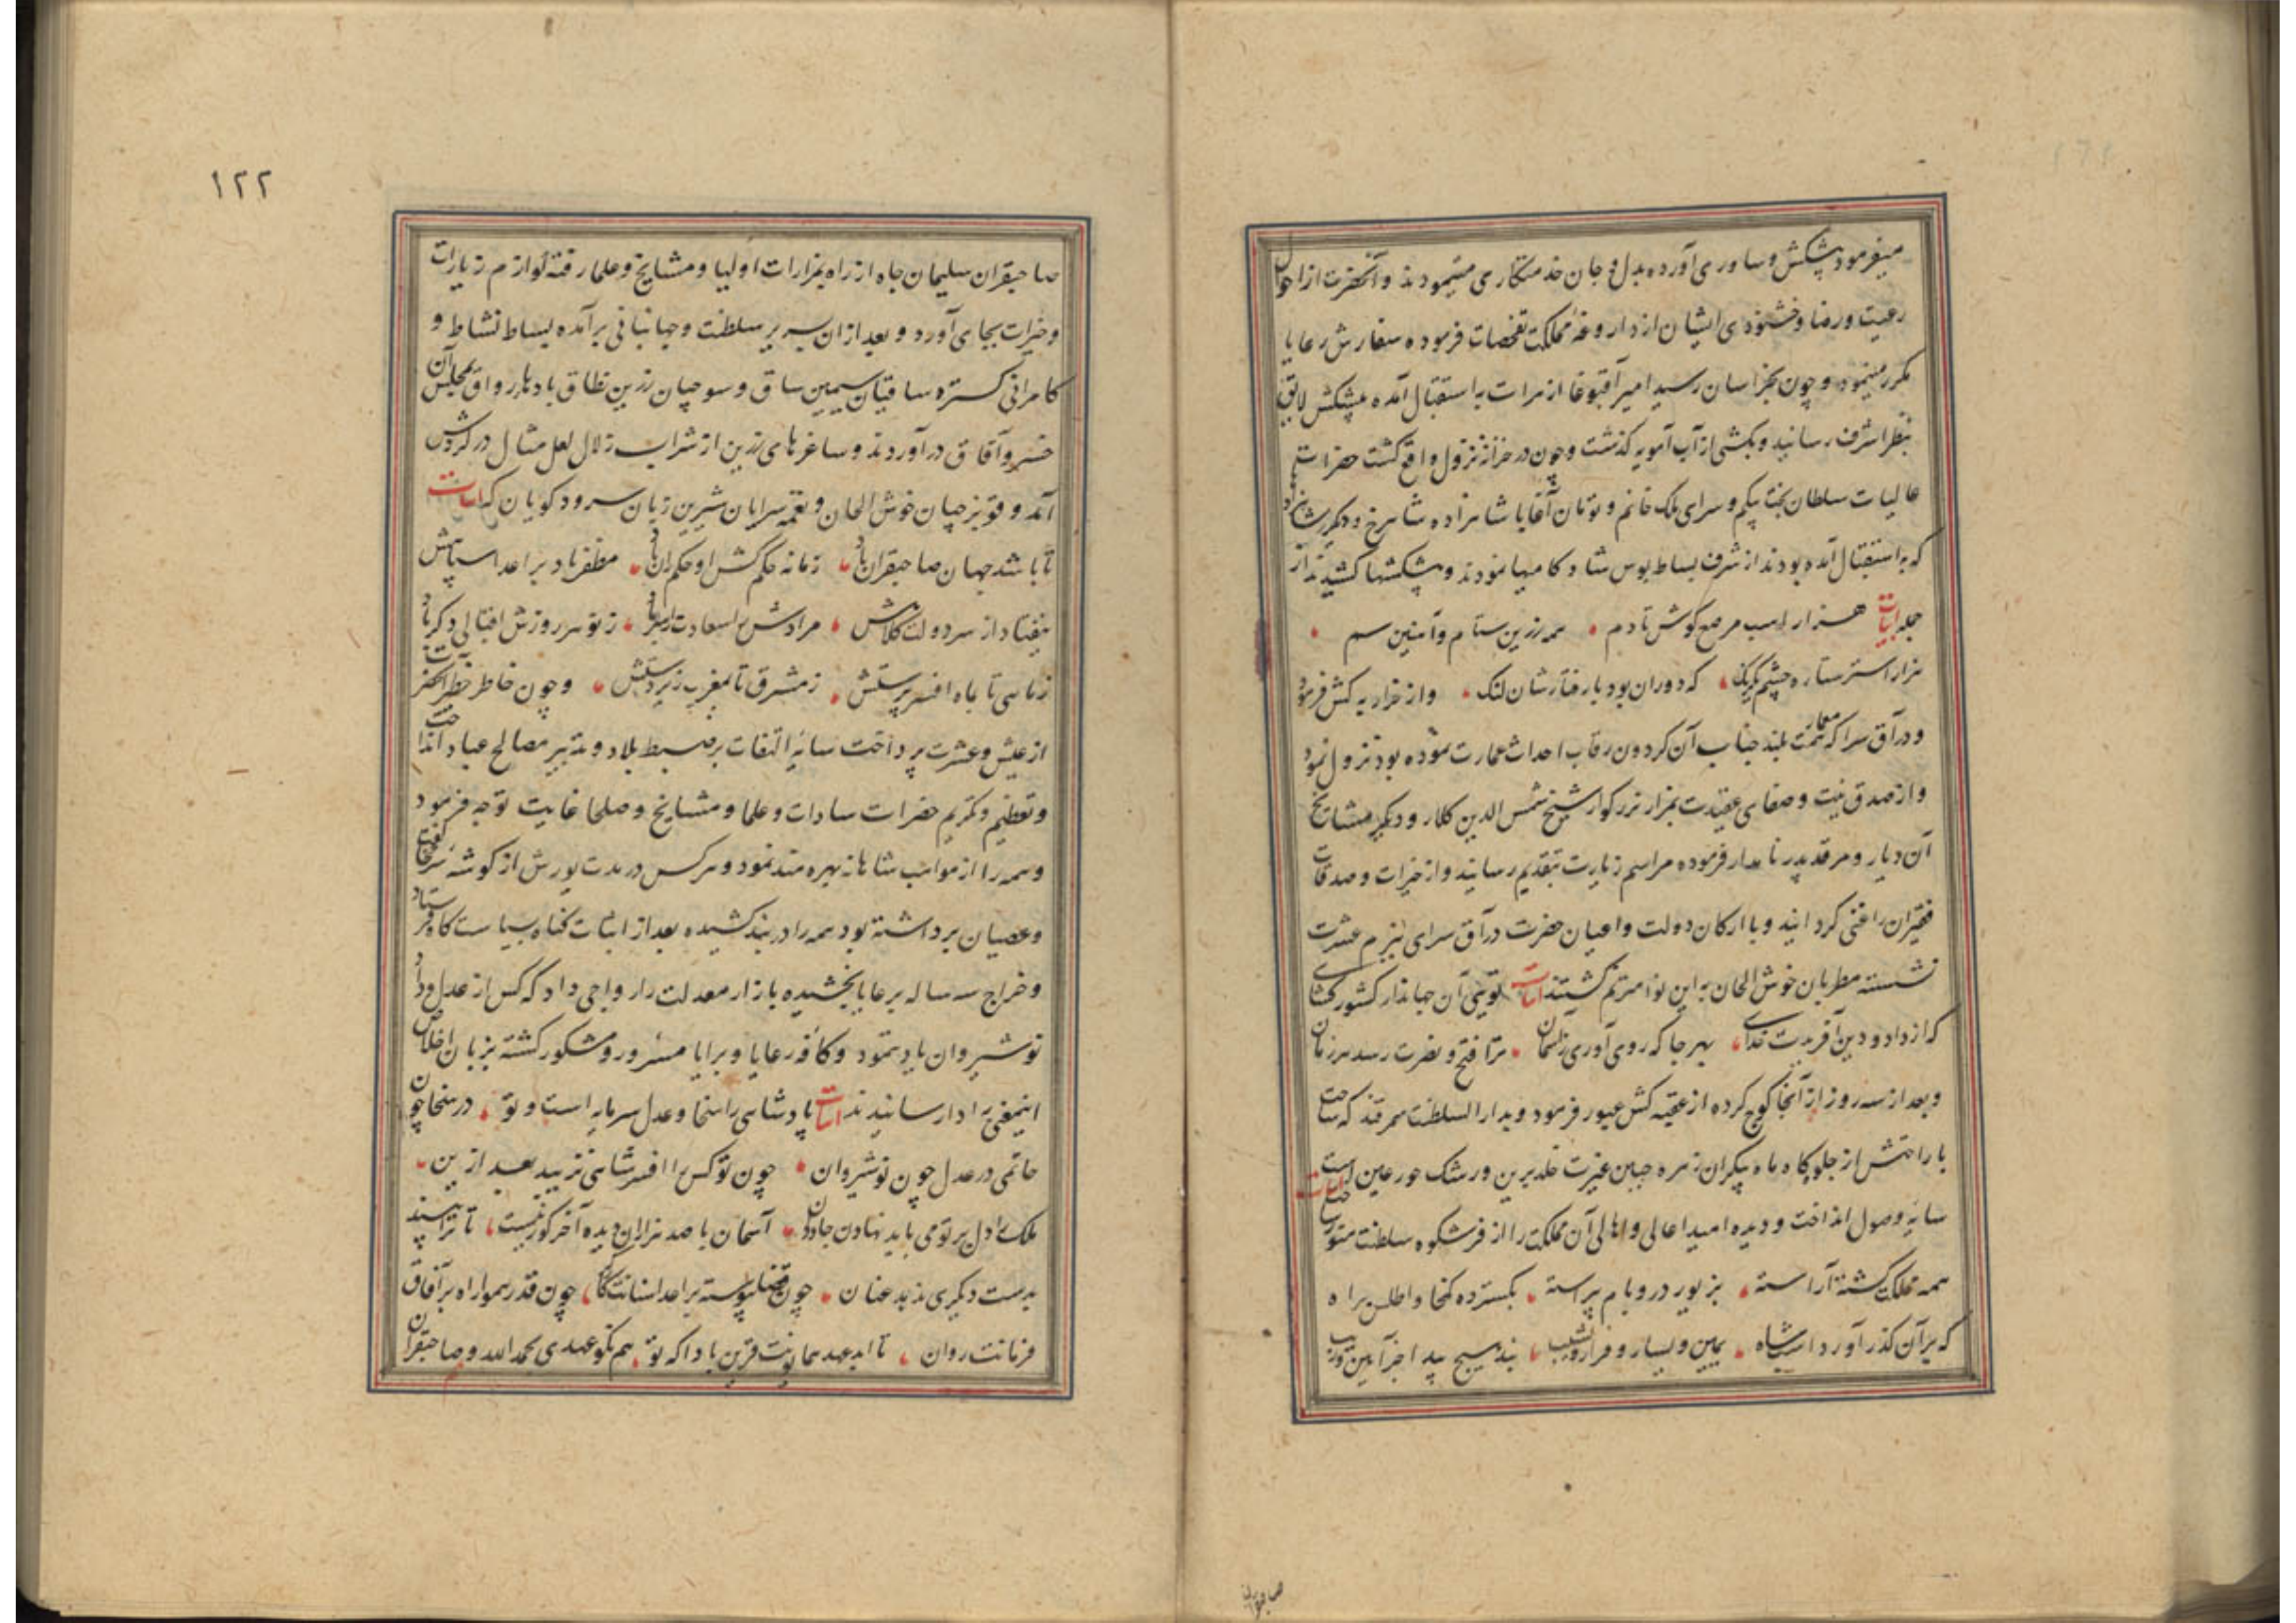 میفرمود پیشکش و ساوری آورده بدل و جان خدمتکاری مینمودند و آنحضرت از احوال
رعیت و رضا و خشنودی ایشان از داروغهٔ مملکت تفحصات فرموده سفارش رعایا
مکرر مینمود و چون بخراسان رسید امیر آقبوغا از هرات به استقبال آمده پیشکش لایق
بنظر اشرف رسانید و بکشتی از آب آمویه گذشت و چون در خزانه نزول واقع گشت حضرات
عالیات سلطان بخت بیگم و سرای ملک خانم و تومان آقا با شاهزاده شاهرخ و دیگر شاهزاد
که به استقبال آمده بودند از شرف بساط بوس شاد کامیها نمودند و پیشکشها کشیدند از
جمله ابیات هزار اسب مرصع گوش تا دم همه زرین ستام و آهنین سم
هزار استر ستاره چشم یکرنگ که دوران بود با رفتارشان لنگ و از خزار به کش فرمود
و در آق سرا که معمار همت بلند جناب آن گردون رقاب احداث عمارت نموده بود نزول نمود
و از صدق نیت و صفای عقیدت بمزار بزرگوار شیخ شمس الدین کلار و دیگر مشایخ
آن دیار و مرقد پدر نامدار فرموده مراسم زیارت بتقدیم رسانید و از خیرات و صدقات
فقیران را غنی گردانید و با ارکان دولت و اعیان حضرت در آق سرای ببزم عشرت
نشسته مطربان خوش الحان به این نوا مترنم گشتند ابیات تویی آن جهاندار کشور گشای
که از داد و دین آفریدت خدای بهر جا که روی آوری ز آسمان ترا فتح و نصرت رسد هر زمان
و بعد از سه روز از آنجا کوچ کرده از عقبه کش عبور فرمود و بدار السلطنت سمرقند که ساحت
با راحتش از جلوه گاه ماه پیکران زهره جبین غیرت خلد برین و رشک حور عین است
سایهٔ وصول انداخت و دیده امید اعالی و اهالی آن مملکت را از فر شکوه سلطنت منور ساخت ابیات
همه مملکت گشته آراسته بزیور در و بام پیراسته بگسترده کمخا و اطلس براه
که بر آن گذر آورد اسب شاه یمین و یسار و فراز و نشیب نبد هیچ پیدا جز آیین و زیب
صاحبقران
۱۲۲
صاحبقران سلیمان جاه از راه بمزارات اولیا و مشایخ و علما رفته لوازم زیارات
و خیرات بجای آورد و بعد از آن بسریر سلطنت و جهانبانی برآمده بساط نشاط و
کامرانی گسترده ساقیان سیمین ساق و سوجیان زرین نطاق باده‌ها رواق بمجلس آن
خسرو آفاق در آوردند و ساغرهای زرین از شراب زلال لعل مثال در گردش
آمد و قوپزچیان خوش الحان و نغمه سرایان شیرین زبان سرود گویان که ابیات
تا باشد جهان صاحبقران باد زمانه حکم کش او حکمران باد مظفر باد بر اعدا سپاهش
بیفتاد از سر دولت کلاهش مرادش با سعادت رهبر باد ز نو هر روزش اقبالی دگر باد
ز ماهی تا بماه افسر پرستش ز مشرق تا بمغرب زیر دستش و چون خاطر خطیر آنحضرت
از عیش و عشرت پرداخت سایهٔ التفات بر ضبط بلاد و تدبیر مصالح عباد انداخت
و تعظیم و تکریم حضرات سادات و علما و مشایخ و صلحا غایت توجه فرمود
و همه را از مواهب شاهانه بهره مند نمود و هر کس در مدت یورش از گوشه سر طغیان
و عصیان برداشته بود همه را در بند کشیده بعد از اثبات گناه بسیاست گاه فرستاد
و خراج سه ساله برعایا بخشیده بازار معدلت را رواجی داد که کس از عدل و داد
نوشیروان یاد ننمود و کافه رعایا و برایا مسرور و مشکور گشته بزبان اخلاص
اینمعنی را ادا رسانیدند ابیات پادشاهی را سخا و عدل سرمایه است و تو در سخا چون
حاتمی در عدل چون نوشیروان چون تو کس را افسر شاهی نزیبد بعد ازین
ملک را دل بر تو می باید نهادن جاودان آسمان با صد هزاران دیده آخر کور نیست تا ترا بیند
بدست دیگری ندهد عنان چون قضا پیوسته بر اعدا سنانت چون قدر همواره بر آفاق
فرمانت روان تا ابد عهد همایونت قرین باد آ که تو هم نکو عهدی بحمد الله و صاحبقران